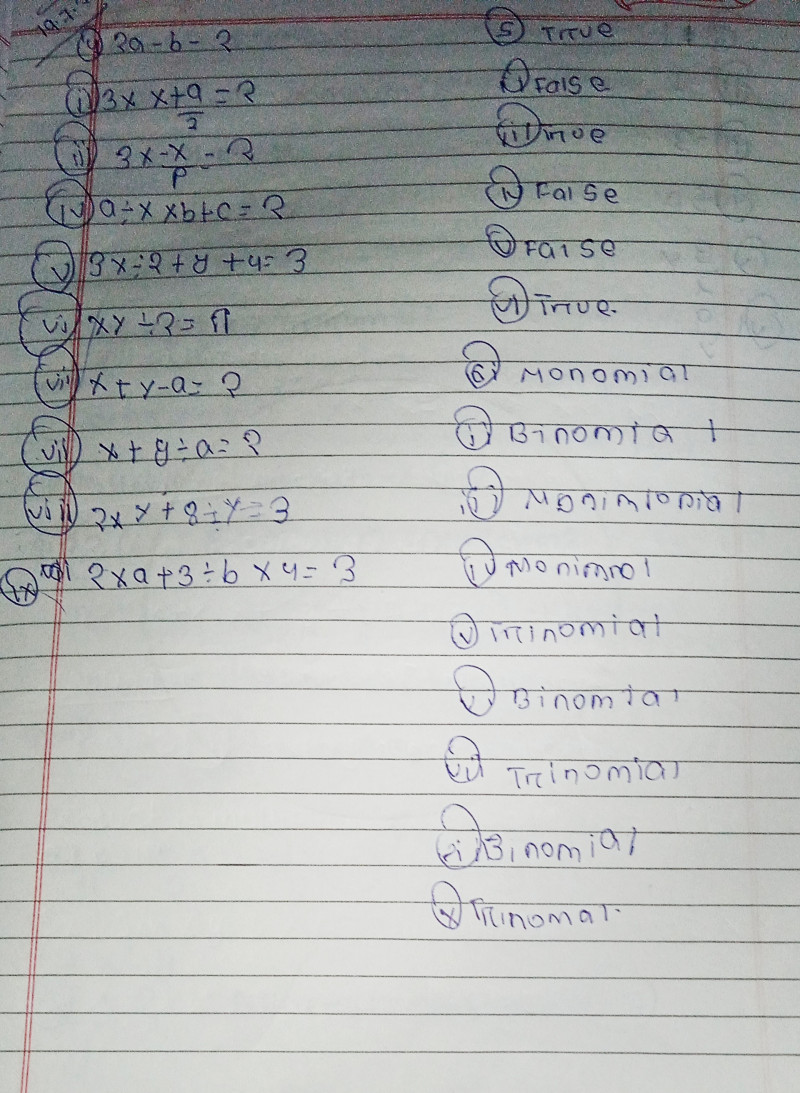 2a-b-2
(ii) 3x x+a/2 = 2
(iii) 3x-x/p - 2
(iv) a÷x xb+c = 2
(v) 3x÷2+y+4=3
(vi) xy÷2=1
(vii) x+y-a=2
(vii) x+y÷a=2
(viii) 2xy+8÷y=3
(ix) 2xa+3÷b x4= 3
(5) True
(i) False
(iii) True
(iv) False
(v) False
(vi) True.
(6) Monomial
(i) Binomial
(iii) Monimlomial
(iv) Monimnol
(v) Trinomial
Binomial
(vii) Trinomial
Binomial
(ix) Trinomal.